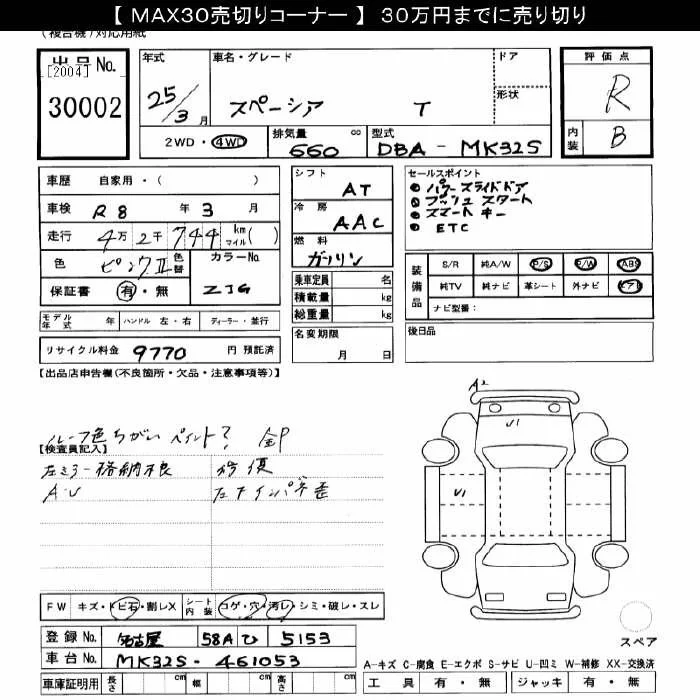 【 MAX30売切りコーナー 】 30万円までに売り切り
(複合機)対応用紙
出品 No.
[2004]
30002
年式
25/3 月
車名・グレード
スペーシア T
ドア
形状
2WD・4WD
排気量 cc
660
型式
DBA - MK32S
評価点
R
内装
B
車歴 自家用・( )
車検 R8 年 3 月
走行 4万 2千 744 km マイル( )
色 ピンクII 色替
カラーNo.
保証書 有・無 ZJG
モデル年式 年 ハンドル 左・右 ディーラー・並行
リサイクル料金 9770 円 預託済
シフト AT
冷房 AAC
燃料 ガソリン
乗車定員 名
積載量 kg
総重量 kg
名変期限
月 日
セールスポイント
パワースライドドア
プッシュスタート
スマートキー
ETC
装備品
S/R 純A/W P/S P/W ABS
純TV 純ナビ 革シート 外ナビ エアB
ナビ型番:
後日品
【出品店申告欄(不良箇所・欠品・注意事項等)】
ルーフ色ちがい ペイント?
【検査員記入】
左ミラー格納不良
A・U
左リインパネ歪
A2
U1
U1
スペア
FW キズ・トビ石・割レX シート内装 コゲ・穴・汚レ・シミ・破レ・スレ
登録 No. 名古屋 58A ひ 5153
車台 No. MK32S - 461053
車庫証明用 長さ cm 幅 cm 高さ cm
A-キズ C-腐食 E-エクボ S-サビ U-凹ミ W-補修 XX-交換済
工具 有・無 ジャッキ 有・無